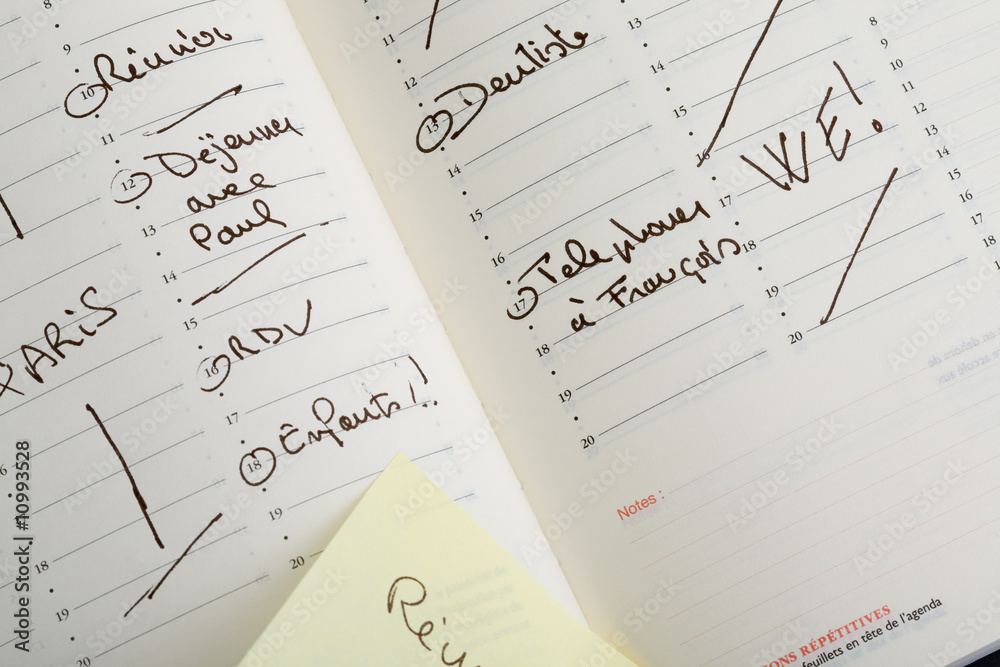 PARIS
Réunion
Déjeuner
avec
Paul
RDV
Enfants!!
Dentiste
Telephoner
à François
WE!
8
9
10
11
12
13
14
15
16
17
18
19
20
11
12
13
14
15
16
17
18
19
20
13
14
16
17
18
19
20
8
9
10
11
12
13
14
15
16
17
18
18
19
20
Notes :
ONS RÉPÉTITIVES
feuillets en tête de l'agenda
Adobe Stock | #10993528